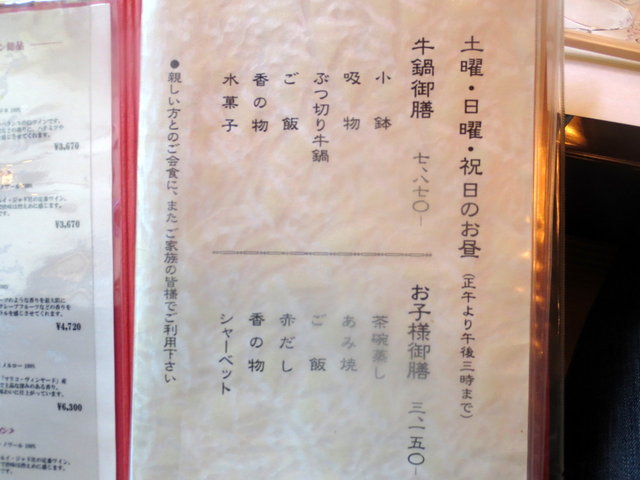 土曜・日曜・祝日のお昼（正午より午後三時まで）
牛鍋御膳 七、八七〇―
小鉢
吸物
ぶつ切り牛鍋
ご飯
香の物
水菓子
お子様御膳 三、一五〇―
茶碗蒸し
あみ焼
ご飯
赤だし
香の物
シャーベット
●親しい方とのご会食に、またご家族の皆様でご利用下さい
¥3,670
¥3,670
¥4,720
¥6,300